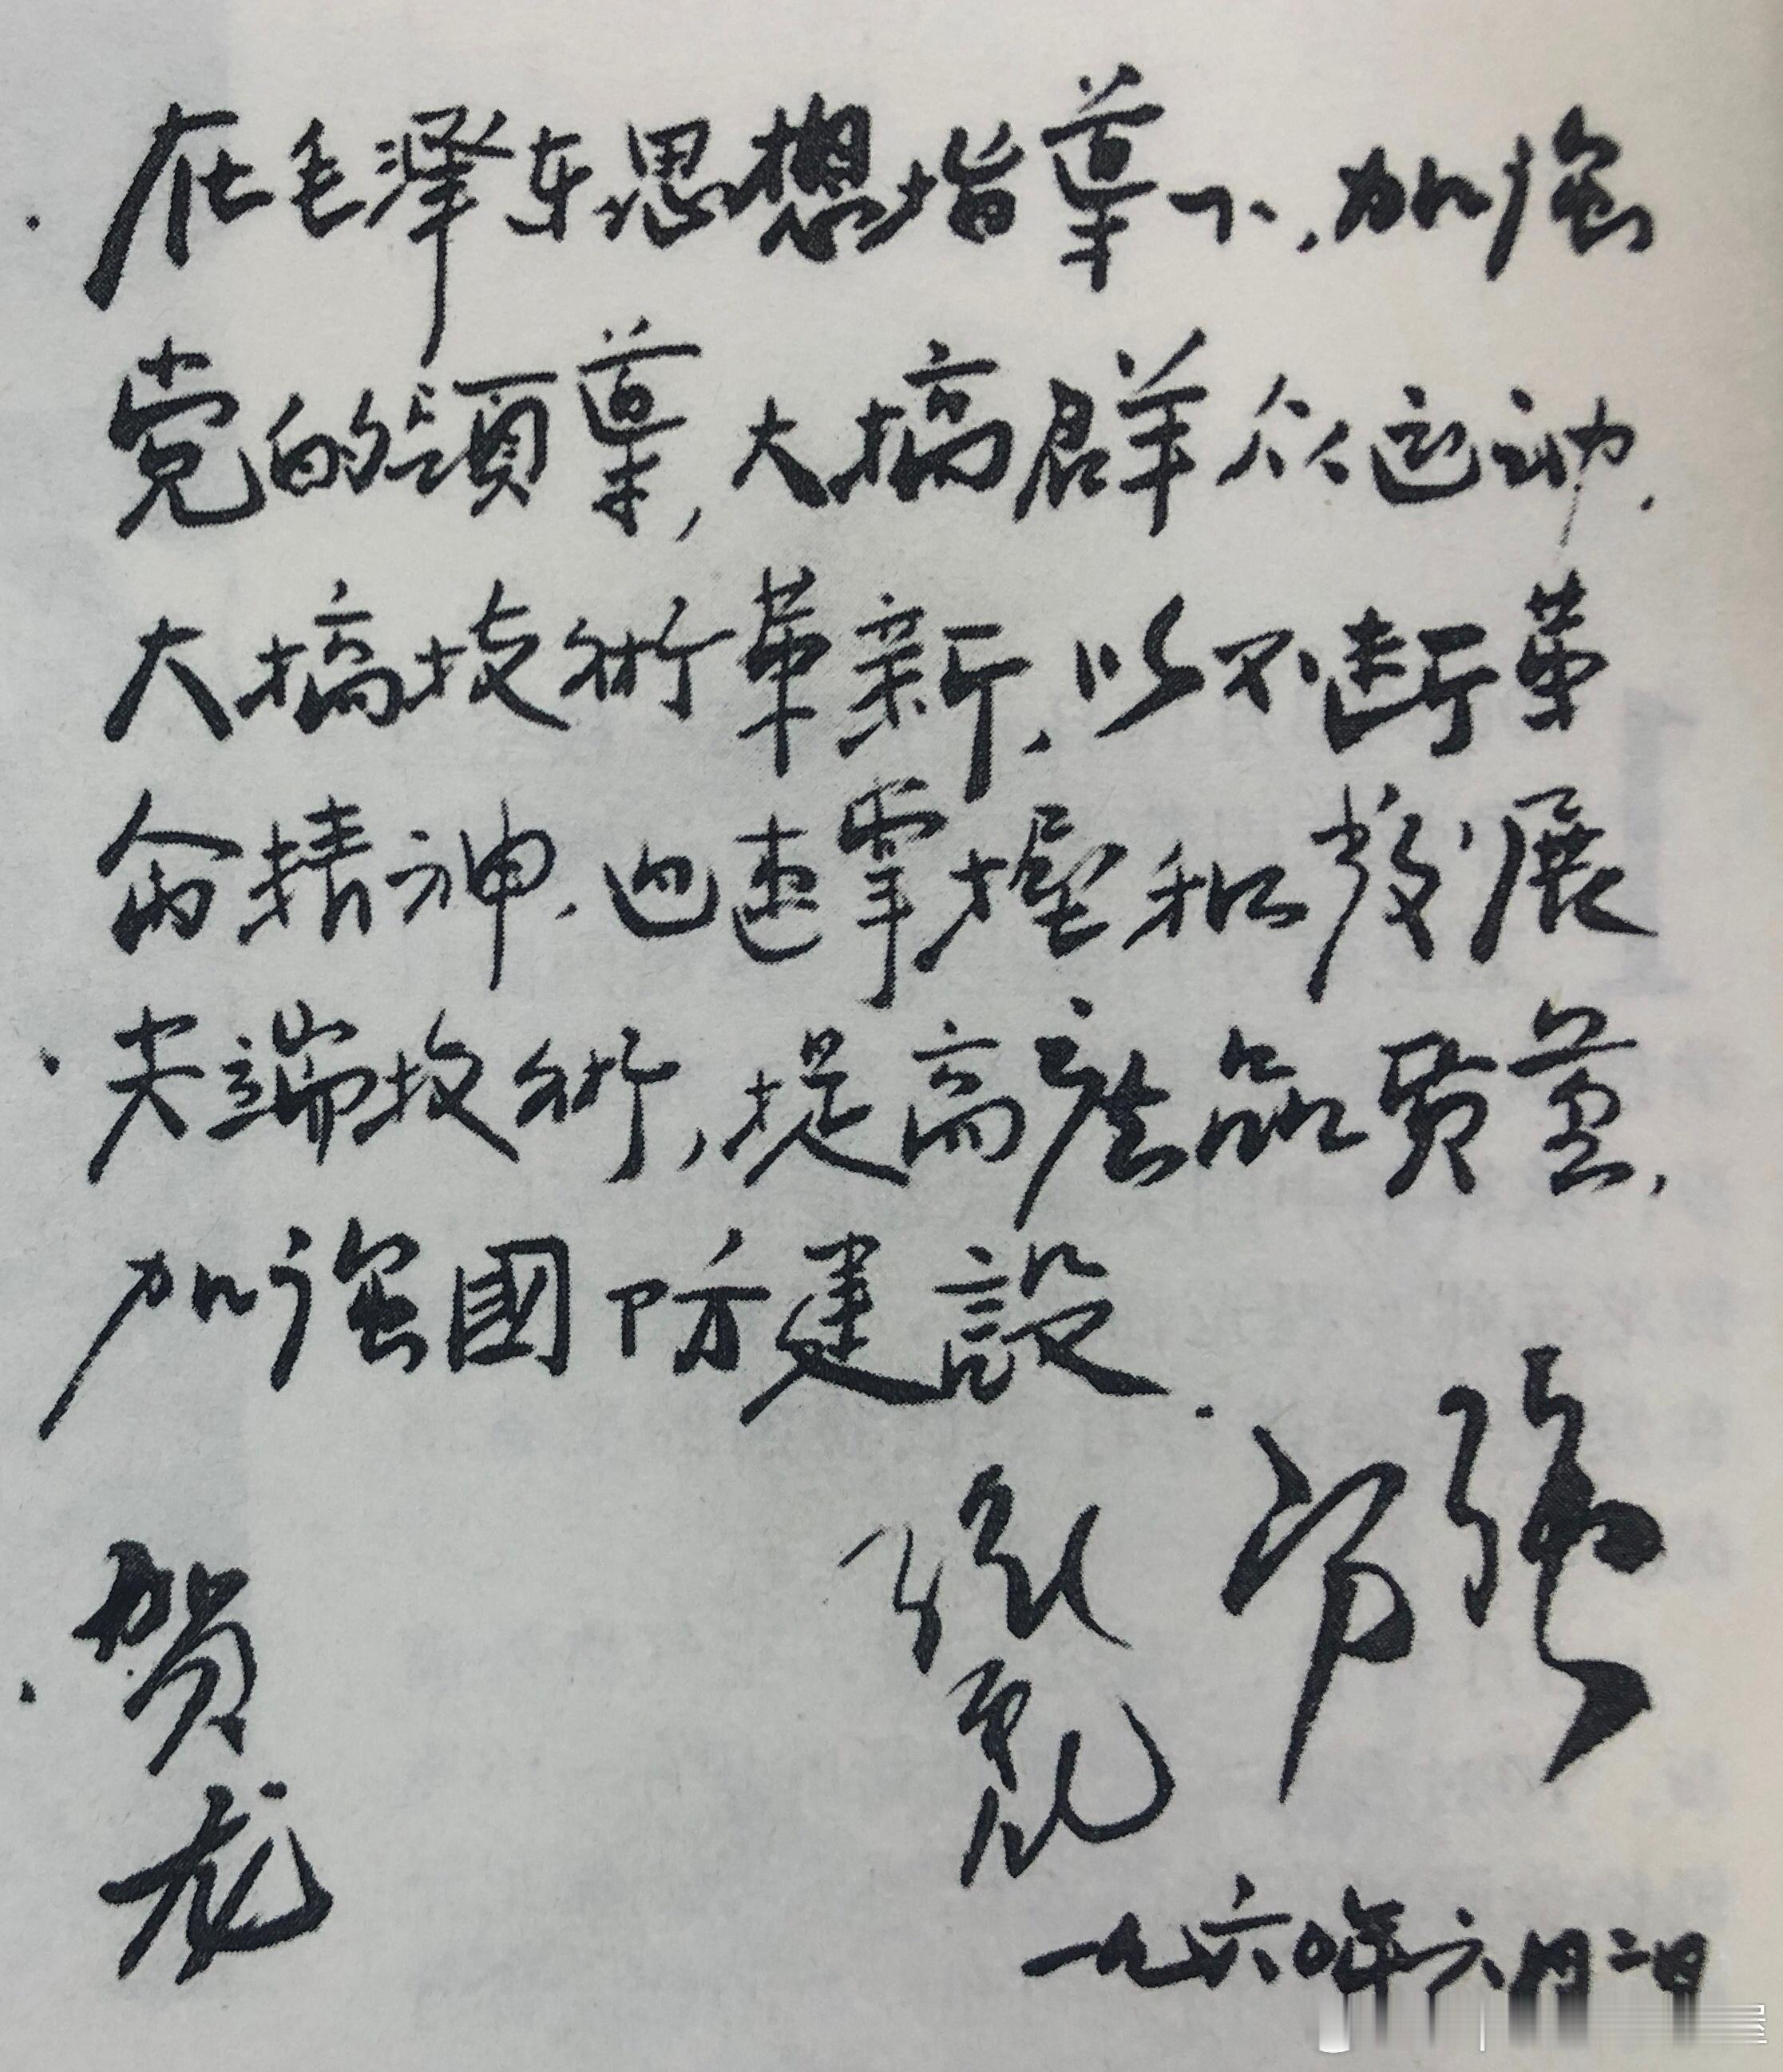 在毛泽东思想指導下，加强
党的領導，大搞群众运动，
大搞技術革新，以不断革
命精神，迅速掌握和发展
尖端技術，提高産品质量，
加强國防建設。
贺龙
方强
一九六〇年六月二日